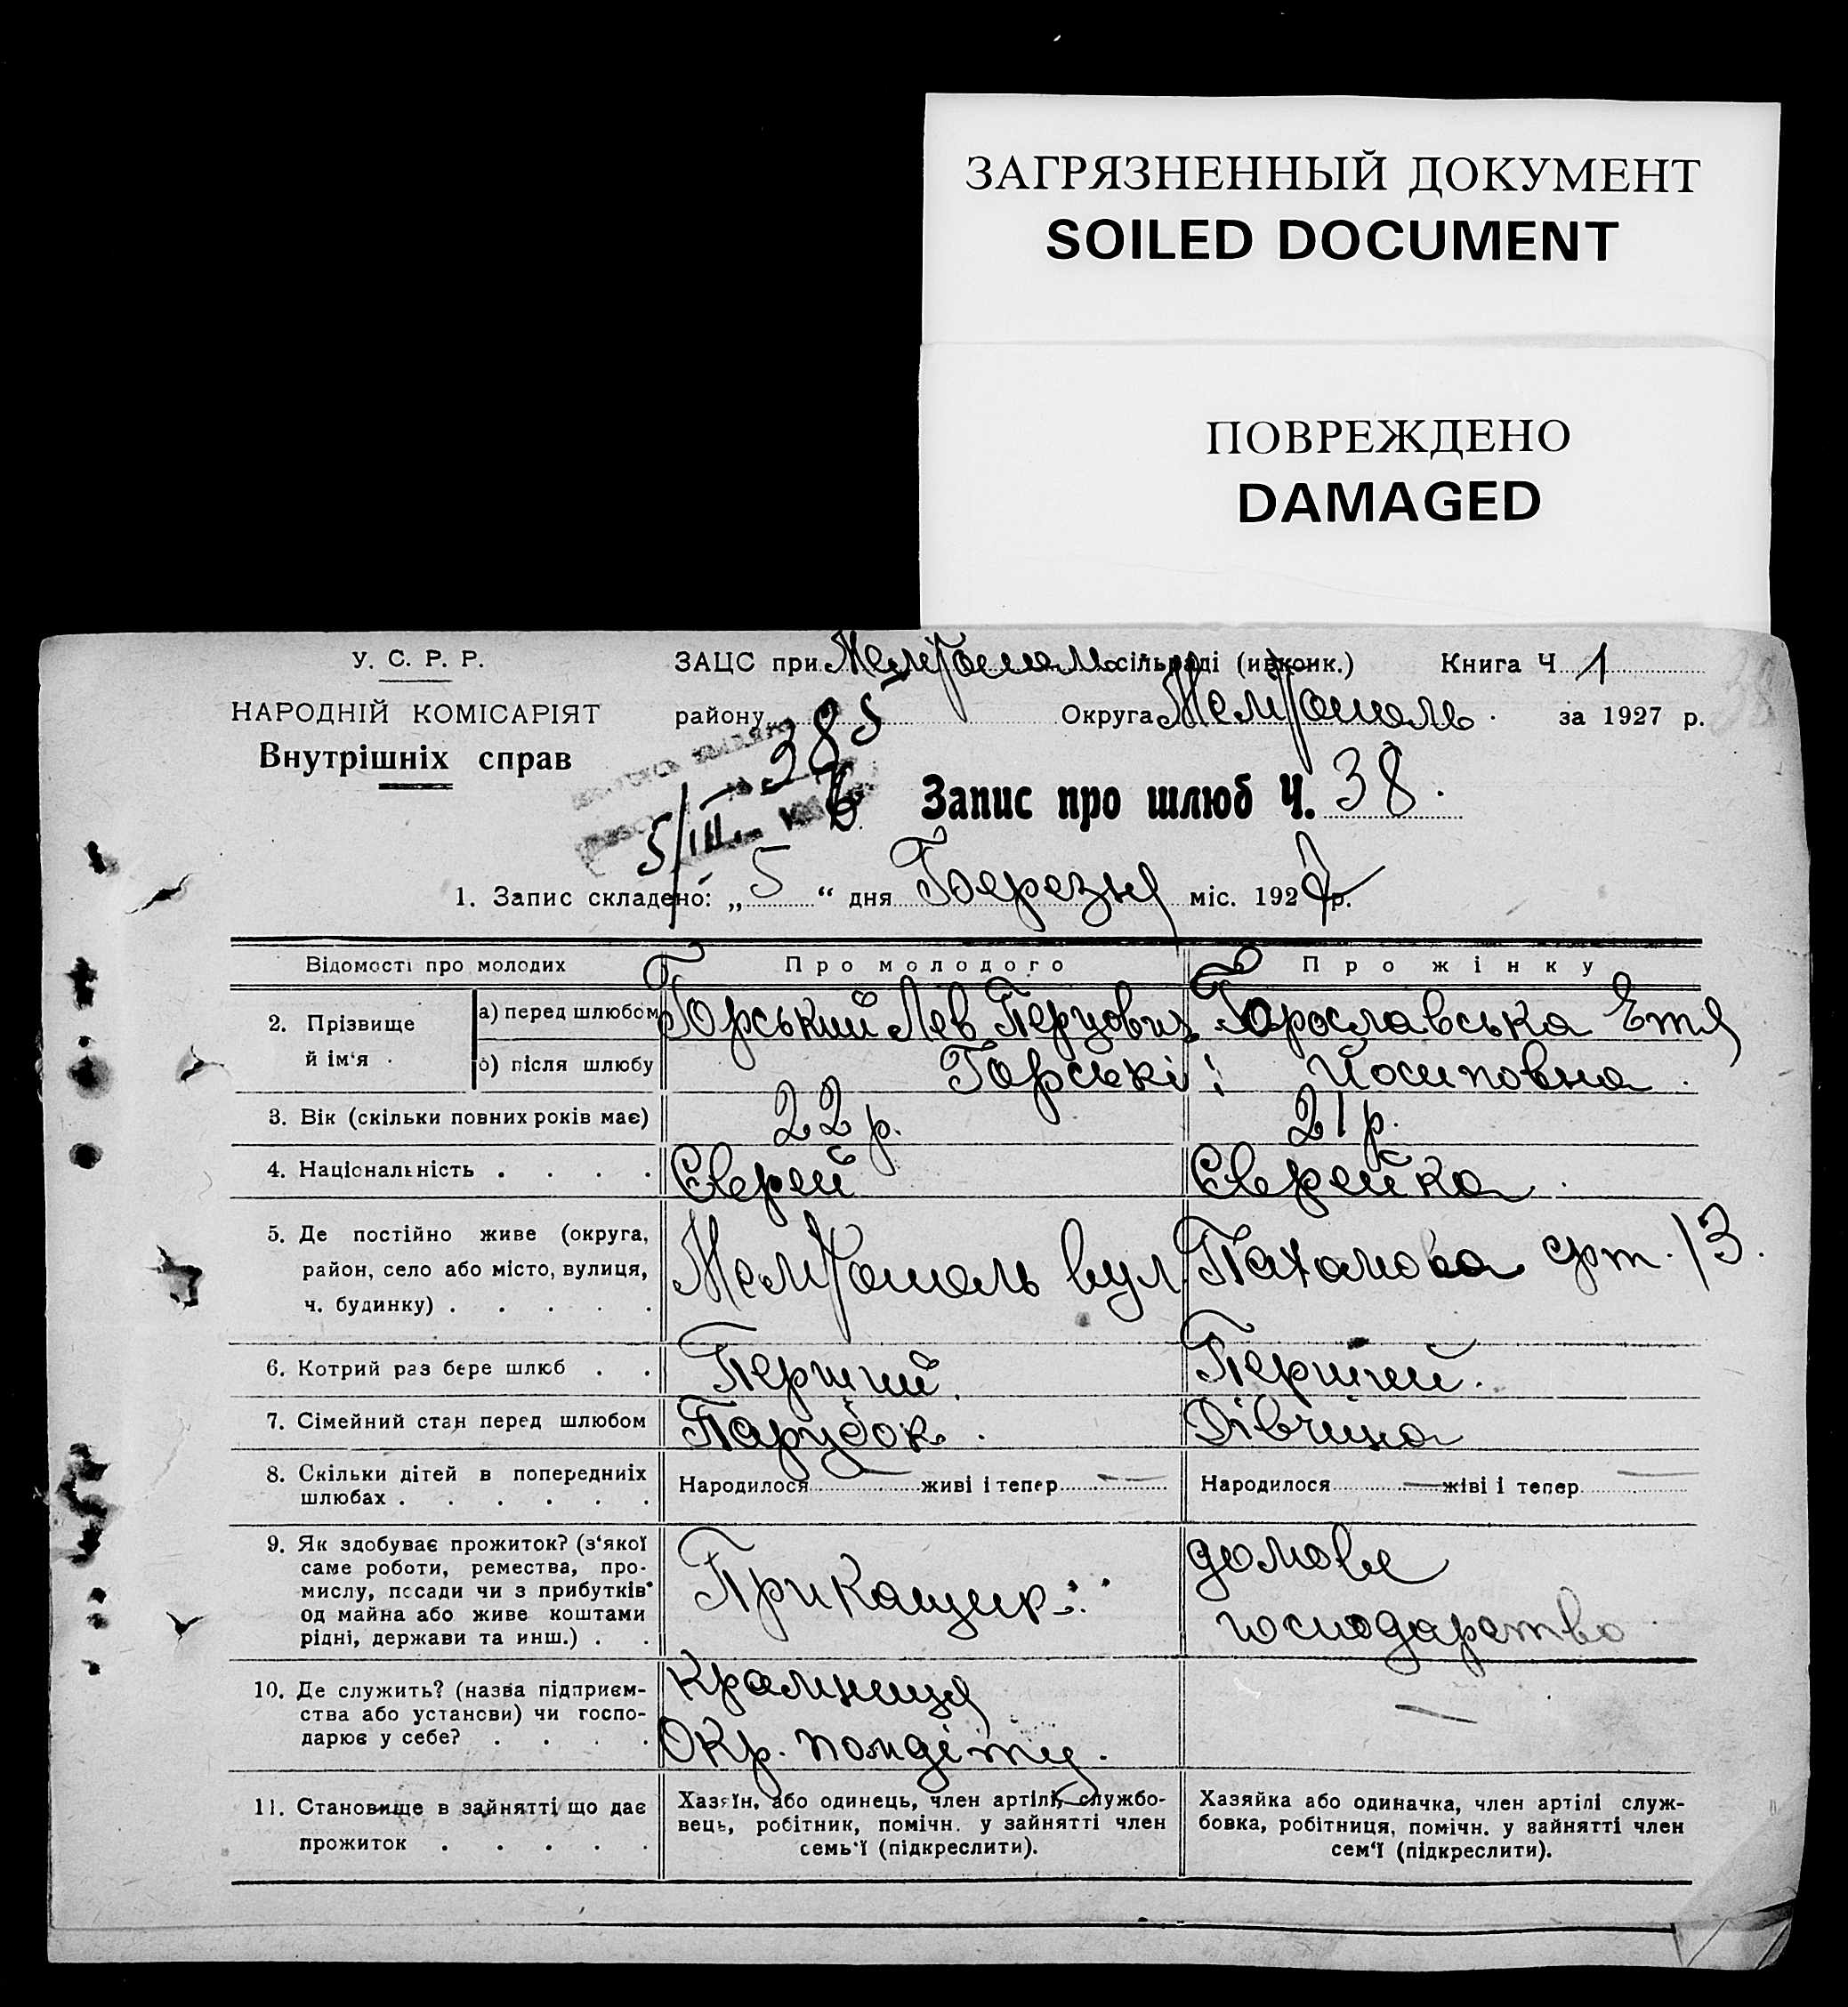 ЗАГРЯЗНЕННЫЙ ДОКУМЕНТ
SOILED DOCUMENT
ПОВРЕЖДЕНО
DAMAGED
У. С. Р. Р.
НАРОДНІЙ КОМІСАРІЯТ
Внутрішніх справ
ЗАЦС при сільраді (ивконк.) Книга Ч 1
району Округа Мелітополь. за 1927 р.
385
5/III
Запис про шлюб Ч. 38.
1. Запис складено: „ 5 “ дня Березня міс. 1927 р.
Відомості про молодих Про молодого Про жінку
2. Прізвище й ім‘я .
а) перед шлюбом Горський Лев Перцович Ярославська Етя
б) після шлюбу Горські: Йосиповна.
3. Вік (скільки повних років має) 22 р. 21 р.
4. Національність . . . . Єврей Єврейка.
5. Де постійно живе (округа,
район, село або місто, вулиця,
ч. будинку) . . . . .
Мелітополь вул. 13.
6. Котрий раз бере шлюб . . Перший. Перший.
7. Сімейний стан перед шлюбом Парубок. Дівчина
8. Скільки дітей в попередниіх
шлюбах . . . . . .
Народилося — живі і тепер — Народилося — жіві і тепер —
9. Як здобуває прожиток? (з‘якої
саме роботи, ремества, про-
мислу, посади чи з прибутків
од майна або живе коштами
рідні, держави та инш.) . .
Прикащик
домове
господарство
10. Де служить? (назва підприєм-
ства або установи) чи госпо-
дарює у себе? . . . .
крамниця
Окр. помдіту. —
11. Становище в зайнятті що дає
прожиток . . . . .
Хазяїн, або одинець, член артілі, службо-
вець, робітник, помічн. у зайнятті член
семь‘ї (підкреслити).
Хазяйка або одиначка, член артілі служ-
бовка, робітниця, помічн. у зайнятті член
сем‘ї (підкреслити).